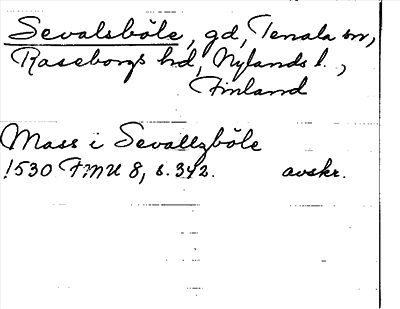 Sevalsböle, gd, Tenala sn,
Raseborgs hd, Nylands l.,
Finland
Mass i Sevallzböle
1530 FMU 8, s. 342. avskr.